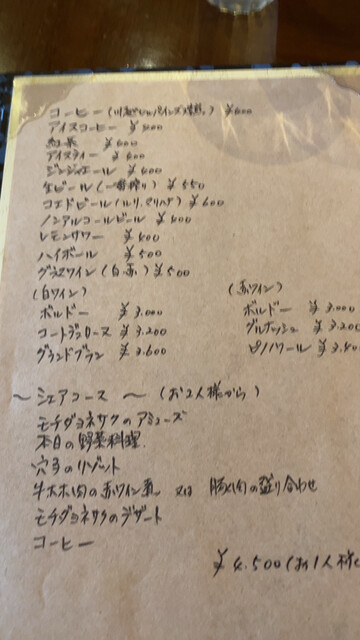 コーヒー ¥400
アイスコーヒー ¥400
紅茶 ¥400
アイスティー ¥400
ジンジャエール ¥400
生ビール(一番搾り) ¥550
コエドビール(ルリ、マリハナ) ¥600
ノンアルコールビール ¥400
レモンサワー ¥400
ハイボール ¥500
グラスワイン(白.赤) ¥500
(白ワイン)
ボルドー ¥3.000
コートデュローヌ ¥3.200
グランドブラン ¥3.600
(赤ワイン)
ボルドー ¥3.000
¥3.200
ピノノワール
〜シェアコース〜(お2人様から)
モチダヨネサクのアミューズ
本日の野菜料理
穴子のリゾット
牛ホホ肉の赤ワイン煮 又は 豚肉の盛り合わせ
モチダヨネサクのデザート
コーヒー
¥4.500(お1人様